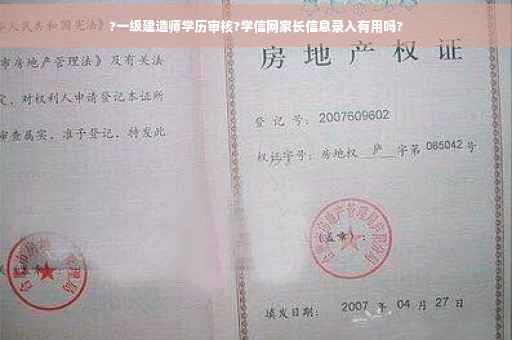 ?一级建造师学历审核?学信网家长信息录入有用吗?
人民共和国宪法》
市房地产管理法》及有关法
定，对权利人申请登记本证所
审查属实，准予登记，特发此
房地产权证
登记号：2007609602
权证字号：房地权 庐 字第 085042 号
(盖章)：
填发日期：2007 年 04 月 27 日